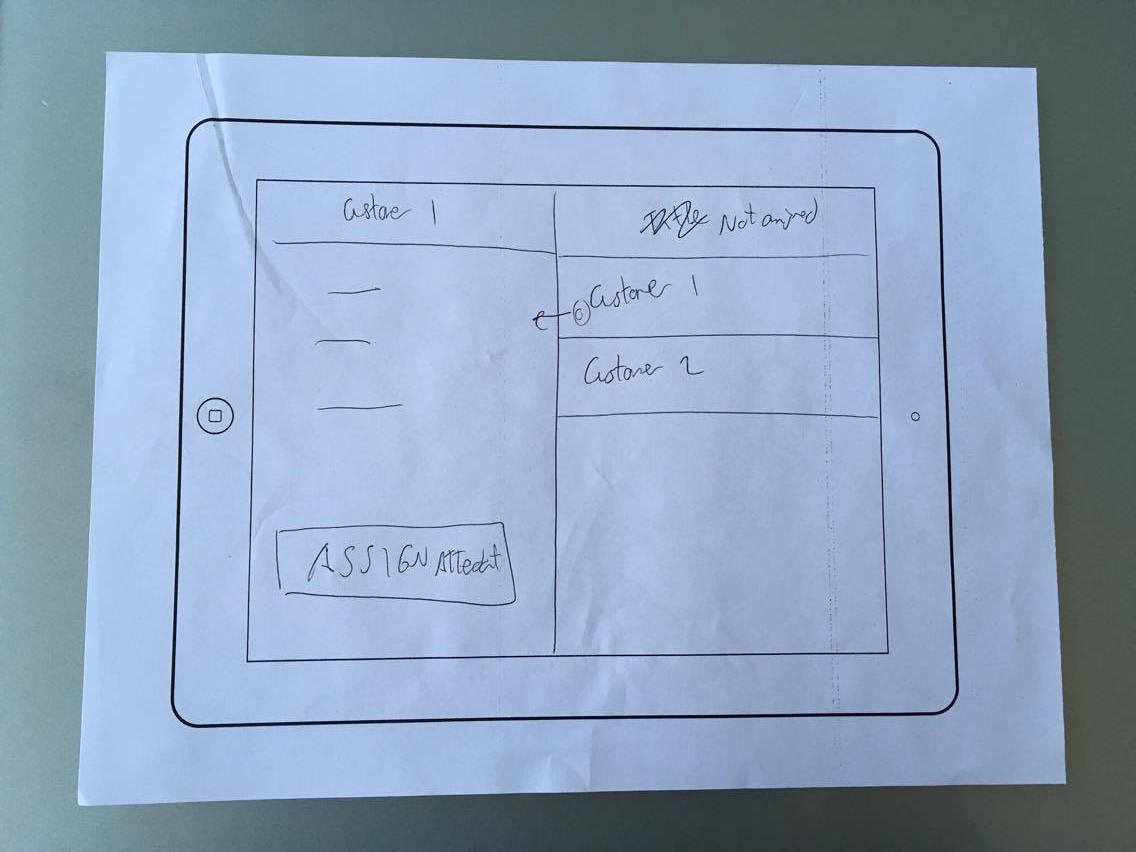 Customer 1
ASSIGN Attendent
Not assigned
Customer 1
Customer 2